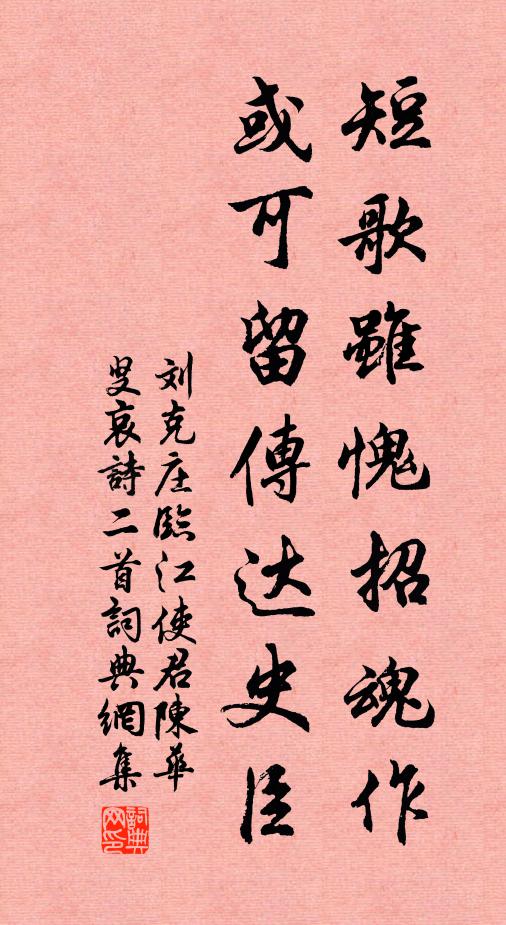 短歌雖愧招魂作
或可留傳达史臣
刘克庄臨江使君陳華
叟哀詩二首詞典網集
詞典网印